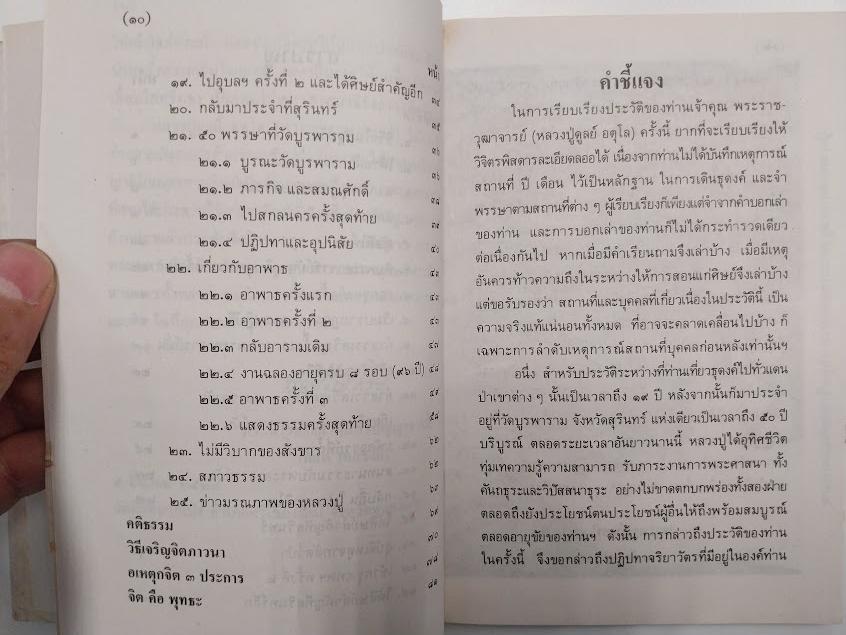 (๑๐)
หน้า
๑๙. ไปอุบลฯ ครั้งที่ ๒ และได้ศิษย์สำคัญอีก ๓๔
๒๐. กลับมาประจำที่สุรินทร์ ๓๕
๒๑. ๕๐ พรรษาที่วัดบูรพาราม ๓๖
๒๑.๑ บูรณะวัดบูรพาราม ๓๖
๒๑.๒ ภารกิจ และสมณศักดิ์ ๓๘
๒๑.๓ ไปสกลนครครั้งสุดท้าย ๓๙
๒๑.๔ ปฏิปทาและอุปนิสัย ๔๐
๒๒. เกี่ยวกับอาพาธ
๒๒.๑ อาพาธครั้งแรก
๒๒.๒ อาพาธครั้งที่ ๒
๒๒.๓ กลับอารามเดิม
๒๒.๔ งานฉลองอายุครบ ๘ รอบ (๙๖ ปี)
๒๒.๕ อาพาธครั้งที่ ๓
๒๒.๖ แสดงธรรมครั้งสุดท้าย
๒๓. ไม่มีวิบากของสังขาร
๒๔. สภาวธรรม
๒๕. ข่าวมรณภาพของหลวงปู่
คติธรรม ๖๙
วิธีเจริญจิตภาวนา ๗๐
อเหตุกจิต ๓ ประการ ๗๘
จิต คือ พุทธะ
คำชี้แจง
ในการเรียบเรียงประวัติของท่านเจ้าคุณ พระราช-
วุฒาจารย์ (หลวงปู่ดูลย์ อตุโล) ครั้งนี้ ยากที่จะเรียบเรียงให้
วิจิตรพิสดารละเอียดลออได้ เนื่องจากท่านไม่ได้บันทึกเหตุการณ์
สถานที่ ปี เดือน ไว้เป็นหลักฐาน ในการเดินธุดงค์ และจำ
พรรษาตามสถานที่ต่าง ๆ ผู้เรียบเรียงก็เพียงแต่จำจากคำบอกเล่า
ของท่าน และการบอกเล่าของท่านก็ไม่ได้กระทำรวดเดียว
ต่อเนื่องกันไป หากเมื่อมีคำเรียนถามจึงเล่าบ้าง เมื่อมีเหตุ
อันควรท้าวความถึงในระหว่างให้การสอนแก่ศิษย์จึงเล่าบ้าง
แต่ขอรับรองว่า สถานที่และบุคคลที่เกี่ยวเนื่องในประวัตินี้ เป็น
ความจริงแท้แน่นอนทั้งหมด ที่อาจจะคลาดเคลื่อนไปบ้าง ก็
เฉพาะการลำดับเหตุการณ์สถานที่บุคคลก่อนหลังเท่านั้นฯ
อนึ่ง สำหรับประวัติระหว่างที่ท่านเที่ยวธุดงค์ไปทั่วแดน
ป่าเขาต่าง ๆ นั้นเป็นเวลาถึง ๑๙ ปี หลังจากนั้นก็มาประจำ
อยู่ที่วัดบูรพาราม จังหวัดสุรินทร์ แห่งเดียวเป็นเวลาถึง ๕๐ ปี
บริบูรณ์ ตลอดระยะเวลาอันยาวนานนี้ หลวงปู่ได้อุทิศชีวิต
ทุ่มเทความรู้ความสามารถ รับภาระงานการพระศาสนา ทั้ง
คันถธุระและวิปัสสนาธุระ อย่างไม่ขาดตกบกพร่องทั้งสองฝ่าย
ตลอดถึงยังประโยชน์ตนประโยชน์ผู้อื่นให้ถึงพร้อมสมบูรณ์
ตลอดอายุขัยของท่านฯ ดังนั้น การกล่าวถึงประวัติของท่าน
ในครั้งนี้ จึงขอกล่าวถึงปฏิปทาจริยาวัตรที่มีอยู่ในองค์ท่าน